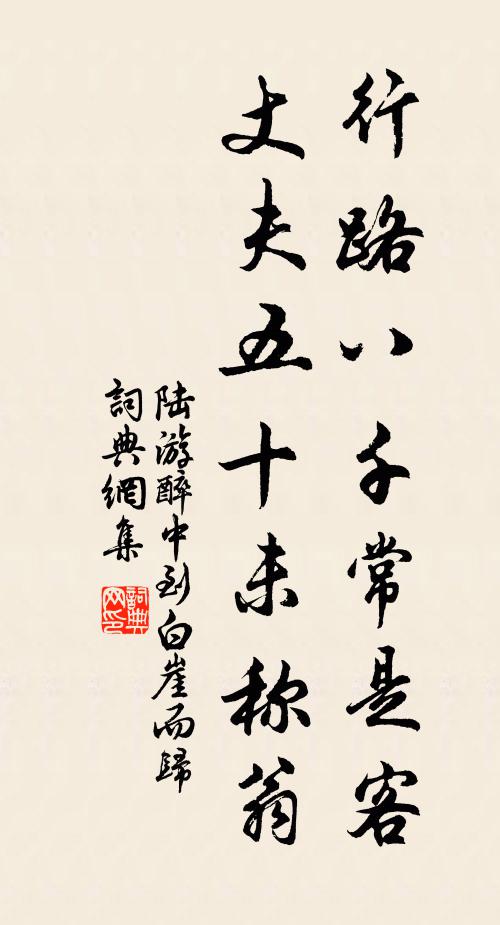 行路八千常是客
丈夫五十未称翁
陆游醉中到白崖而歸
詞典網集
詞典网印